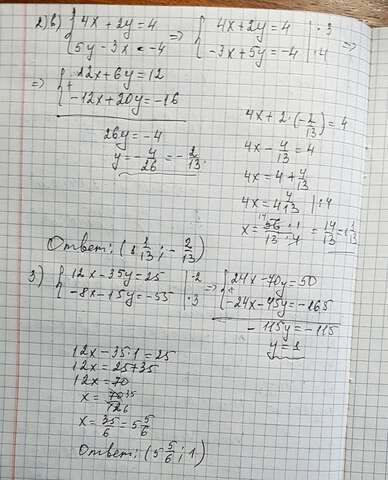 2) в) { 4x + 2y = 4 => { 4x + 2y = 4 | · 3 =>
5y - 3x = -4 -3x + 5y = -4 | · 4
=> { 12x + 6y = 12
+ -12x + 20y = -16
26y = -4
y = - 4/26 = - 2/13.
4x + 2 · (- 2/13) = 4
4x - 4/13 = 4
4x = 4 + 4/13
4x = 4 4/13 | : 4
x = 56 · 1 / 13 · 4 = 14/13 = 1 1/13
Ответ: (1 1/13 ; - 2/13)
3) { 12x - 35y = 25 | · 2 => { 24x - 70y = 50
-8x - 15y = -55 | · 3 + -24x - 45y = -165
-115y = -115
y = 1
12x - 35 · 1 = 25
12x = 25 + 35
12x = 70
x = 70 35 / 12 6
x = 35/6 = 5 5/6
Ответ: (5 5/6 ; 1)